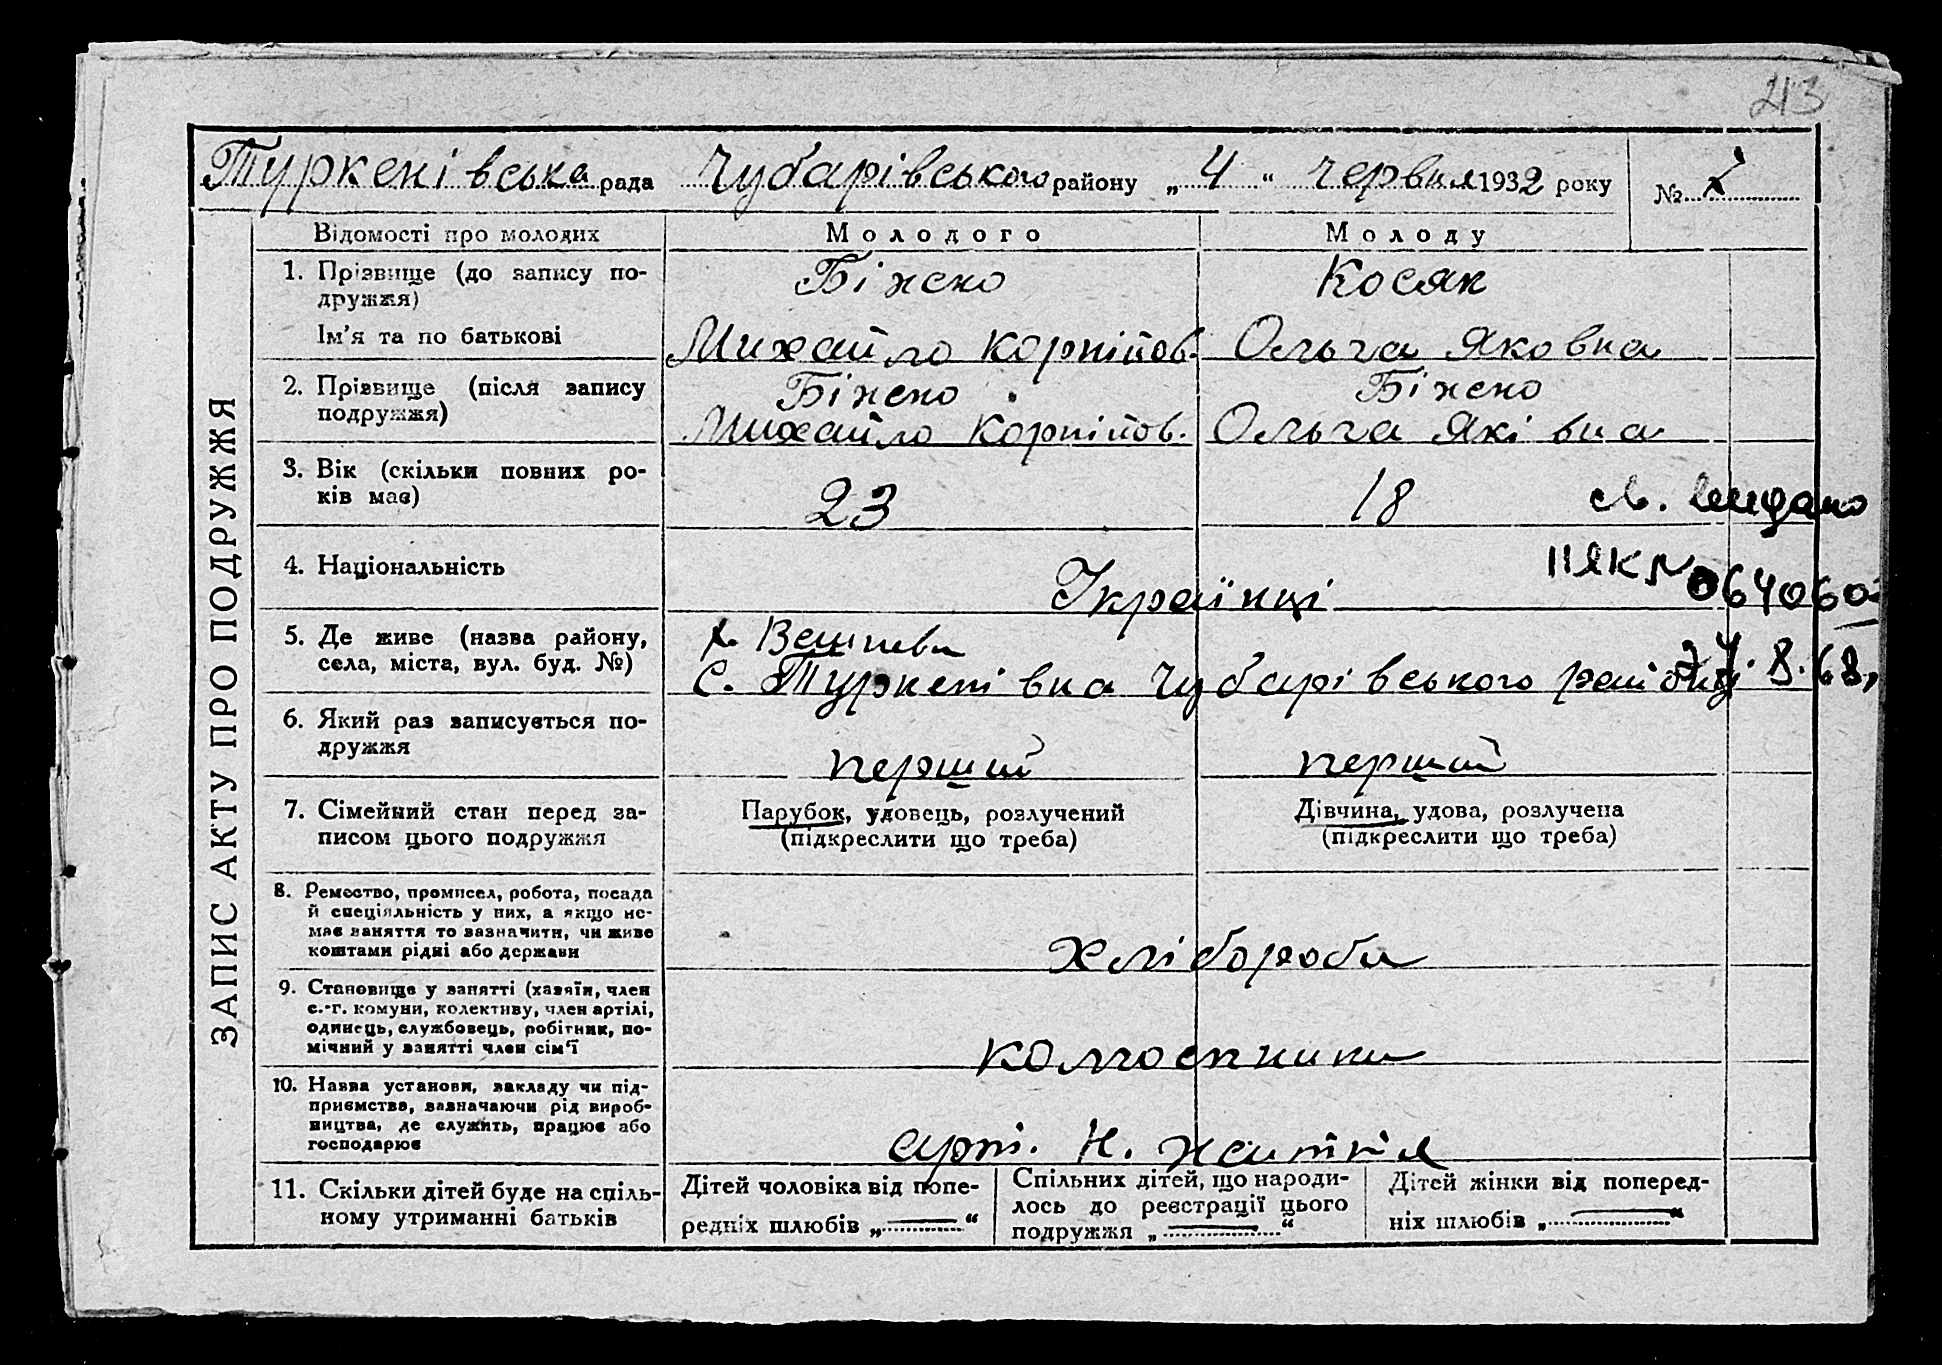 43
Туркенівська рада Чубарівського району „ 4 “ червня 1932 року №
ЗАПИС АКТУ ПРО ПОДРУЖЖЯ
Відомості про молодих Молодого Молоду
1. Прізвище (до запису по-
дружжя)
Біжко Косяк
Ім'я та по батькові Михайло Корнійов. Ольга Яковна
2. Прізвище (після запису
подружжя)
Біжко Біжко
Михайло Корнійов. Ольга Яківна
3. Вік (скільки повних ро-
ків має)
23 18
св. видано
4. Національність Українці
ІІЯК № 064060
5. Де живе (назва району,
села, міста, вул. буд. №)
С. Туркенівка Чубарівського району
8.68
6. Який раз записується по-
дружжя
перший перший
7. Сімейний стан перед за-
писом цього подружжя
Парубок, удовець, розлучений
(підкреслити що треба)
Дівчина, удова, розлучена
(підкреслити що треба)
8. Ремество, промисел, робота, посада
й спеціяльність у них, а якщо не-
має заняття то зазначити, чи живе
коштами рідні або держави
хлібороби
9. Становище у занятті (хазяїн, член
с.-г. комуни, колективу, член артілі,
одинець, службовець, робітник, по-
мічний у занятті член сім'ї
колгоспники
10. Назва установи, закладу чи під-
приємства, зазначаючи рід вироб-
ництва, де служить, працює або
господарює
арт. Н. життя
11. Скільки дітей буде на спіль-
ному утриманні батьків
Дітей чоловіка від попе-
редніх шлюбів „ — “
Спільних дітей, що народи-
лось до реєстрації цього
подружжя „ — “
Дітей жінки від поперед-
ніх шлюбів „ — “